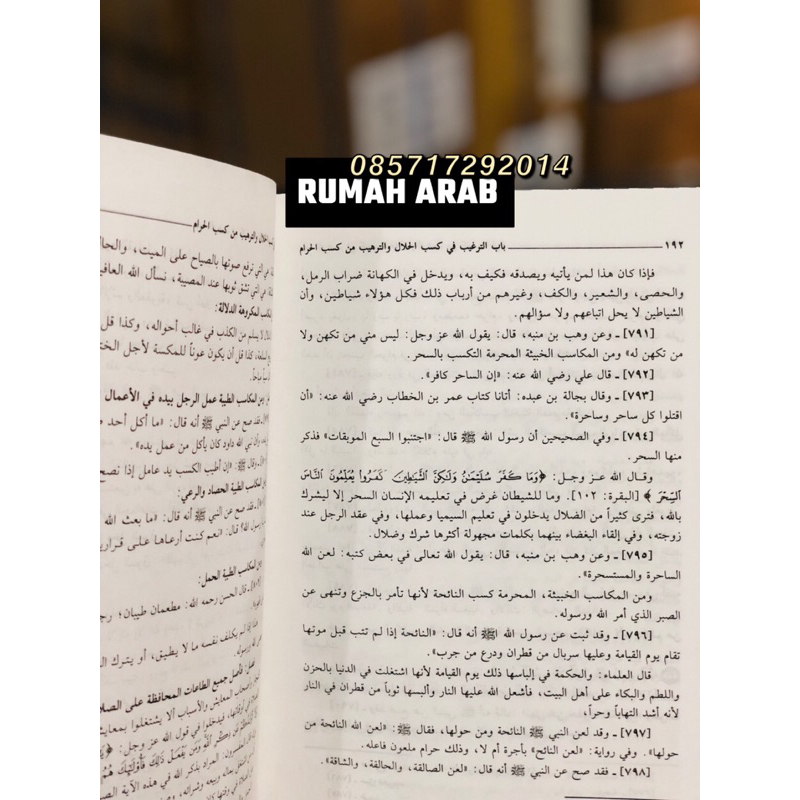 085717292014
RUMAH ARAB
١٩٢ باب الترغيب في كسب الحلال والترهيب من كسب الحرام
فإذا كان هذا لمن يأتيه ويصدقه فكيف به، ويدخل في الكهانة ضراب الرمل،
والحصى، والشعير، والكف، وغيرهم من أرباب ذلك فكل هؤلاء شياطين، وأن
الشياطين لا يحل اتباعهم ولا سؤالهم.
[٧٩١] ـ وعن وهب بن منبه، قال: يقول الله عز وجل: ليس مني من تكهن ولا
من تكهن له» ومن المكاسب الخبيثة المحرمة التكسب بالسحر.
[٧٩٢] ـ قال علي رضي الله عنه: «إن الساحر كافر».
[٧٩٣] ـ وقال بجالة بن عبده: أتانا كتاب عمر بن الخطاب رضي الله عنه: «أن
اقتلوا كل ساحر وساحرة».
[٧٩٤] ـ وفي الصحيحين أن رسول الله ﷺ قال: «اجتنبوا السبع الموبقات» فذكر
منها السحر.
وقال الله عز وجل: ﴿وَمَا كَفَرَ سُلَيْمَنُ وَلَكِنَّ الشَّيَاطِينَ كَفَرُوا يُعَلِّمُونَ النَّاسَ
السِّحْرَ﴾ [البقرة: ١٠٢]. وما للشيطان غرض في تعليمه الإنسان السحر إلا ليشرك
بالله، فترى كثيراً من الضلال يدخلون في تعليم السيميا وعملها، وفي عقد الرجل عند
زوجته، وفي إلقاء البغضاء بينهما بكلمات مجهولة أكثرها شرك وضلال.
[٧٩٥] ـ وعن وهب بن منبه، قال: يقول الله تعالى في بعض كتبه: لعن الله
الساحرة والمستسحرة».
ومن المكاسب الخبيثة، المحرمة كسب النائحة لأنها تأمر بالجزع وتنهى عن
الصبر الذي أمر الله ورسوله.
[٧٩٦] ـ وقد ثبت عن رسول الله ﷺ أنه قال: «النائحة إذا لم تتب قبل موتها
تقام يوم القيامة وعليها سربال من قطران ودرع من جرب».
قال العلماء: والحكمة في إلباسها ذلك يوم القيامة لأنها اشتغلت في الدنيا بالحزن
واللطم والبكاء على أهل البيت، فأشعل الله عليها النار وألبسها ثوباً من قطران في النار
لأنه أشد التهاباً وحراً،
[٧٩٧] ـ وقد لعن النبي ﷺ النائحة ومن حولها، فقال ﷺ: «لعن الله النائحة من
حولها». وفي رواية: «لعن النائح» بأجرة أم لا، وذلك حرام ملعون فاعله.
[٧٩٨] ـ فقد صح عن النبي ﷺ أنه قال: «لعن الصالقة، والحالقة، والشاقة».
الحلال والترهيب من كسب الحرام
هي التي ترفع صوتها بالصياح على الميت،
هي التي تشق ثوبها عند المصيبة، نسأل الله
المكاسب المكروهة الدلالة:
لا يسلم من الكذب في غالب أحواله، وكذا
كذا قل أن يكون عوناً للمكسة لأجل
ومن المكاسب الطيبة عمل الرجل بيده في الأعمال
فقد صح عن النبي ﷺ أنه قال: «ما أكل أحد
نبي الله داود كان يأكل من عمل يده».
وقال ﷺ: «إن أطيب الكسب يد عامل إذا نصح
المكاسب الطيبة الحصاد والرعي:
صح عن النبي ﷺ أنه قال: «ما بعث الله
رسول الله؟ قال: «نعم كنت أرعاها على
المكاسب الطيبة الحمل:
قال الحسن رحمه الله: مطعمان طيبان؛
يكلف نفسه ما لا يطيق، أو يترك
أفضل جميع الطاعات المحافظة على
المعايش والأسباب ألا يشتغلوا
فيدخلوا في قول الله عز وجل:
المراد بذكر الله في هذه الآية